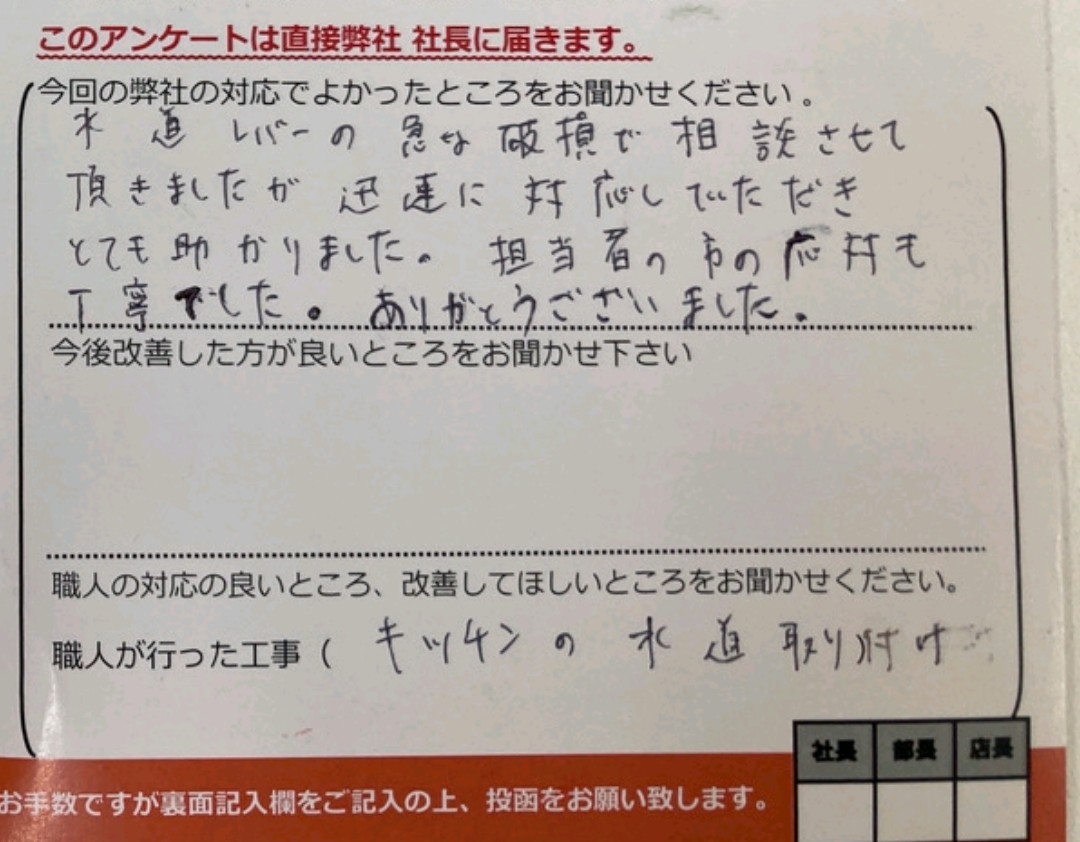 このアンケートは直接弊社 社長に届きます。
今回の弊社の対応でよかったところをお聞かせください。
水道レバーの急な破損で相談させて
頂きましたが迅速に対応していただき
とても助かりました。担当者の方の応対も
丁寧でした。ありがとうございました。
今後改善した方が良いところをお聞かせ下さい
職人の対応の良いところ、改善してほしいところをお聞かせください。
職人が行った工事（ キッチンの水道取り付け
社長 部長 店長
お手数ですが裏面記入欄をご記入の上、投函をお願い致します。